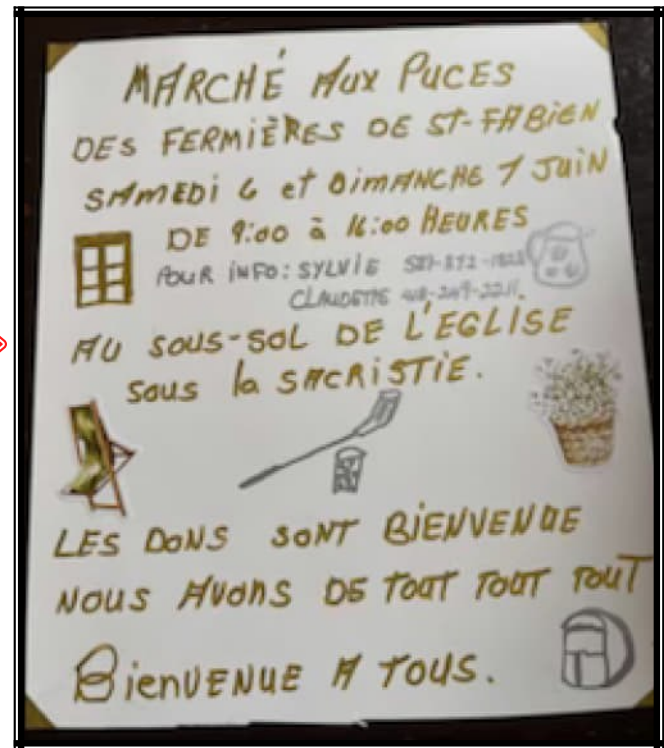 MARCHÉ AUX PUCES
DES FERMIÈRES DE ST-FABIEN
SAMEDI 6 et DIMANCHE 7 JUIN
DE 9:00 à 16:00 HEURES
POUR INFO: SYLVIE
CLAUDETTE
AU SOUS-SOL DE L'EGLISE
sous la SACRISTIE.
LES DONS SONT BIENVENUE
NOUS AVONS DE TOUT TOUT TOUT
BIENVENUE A TOUS.